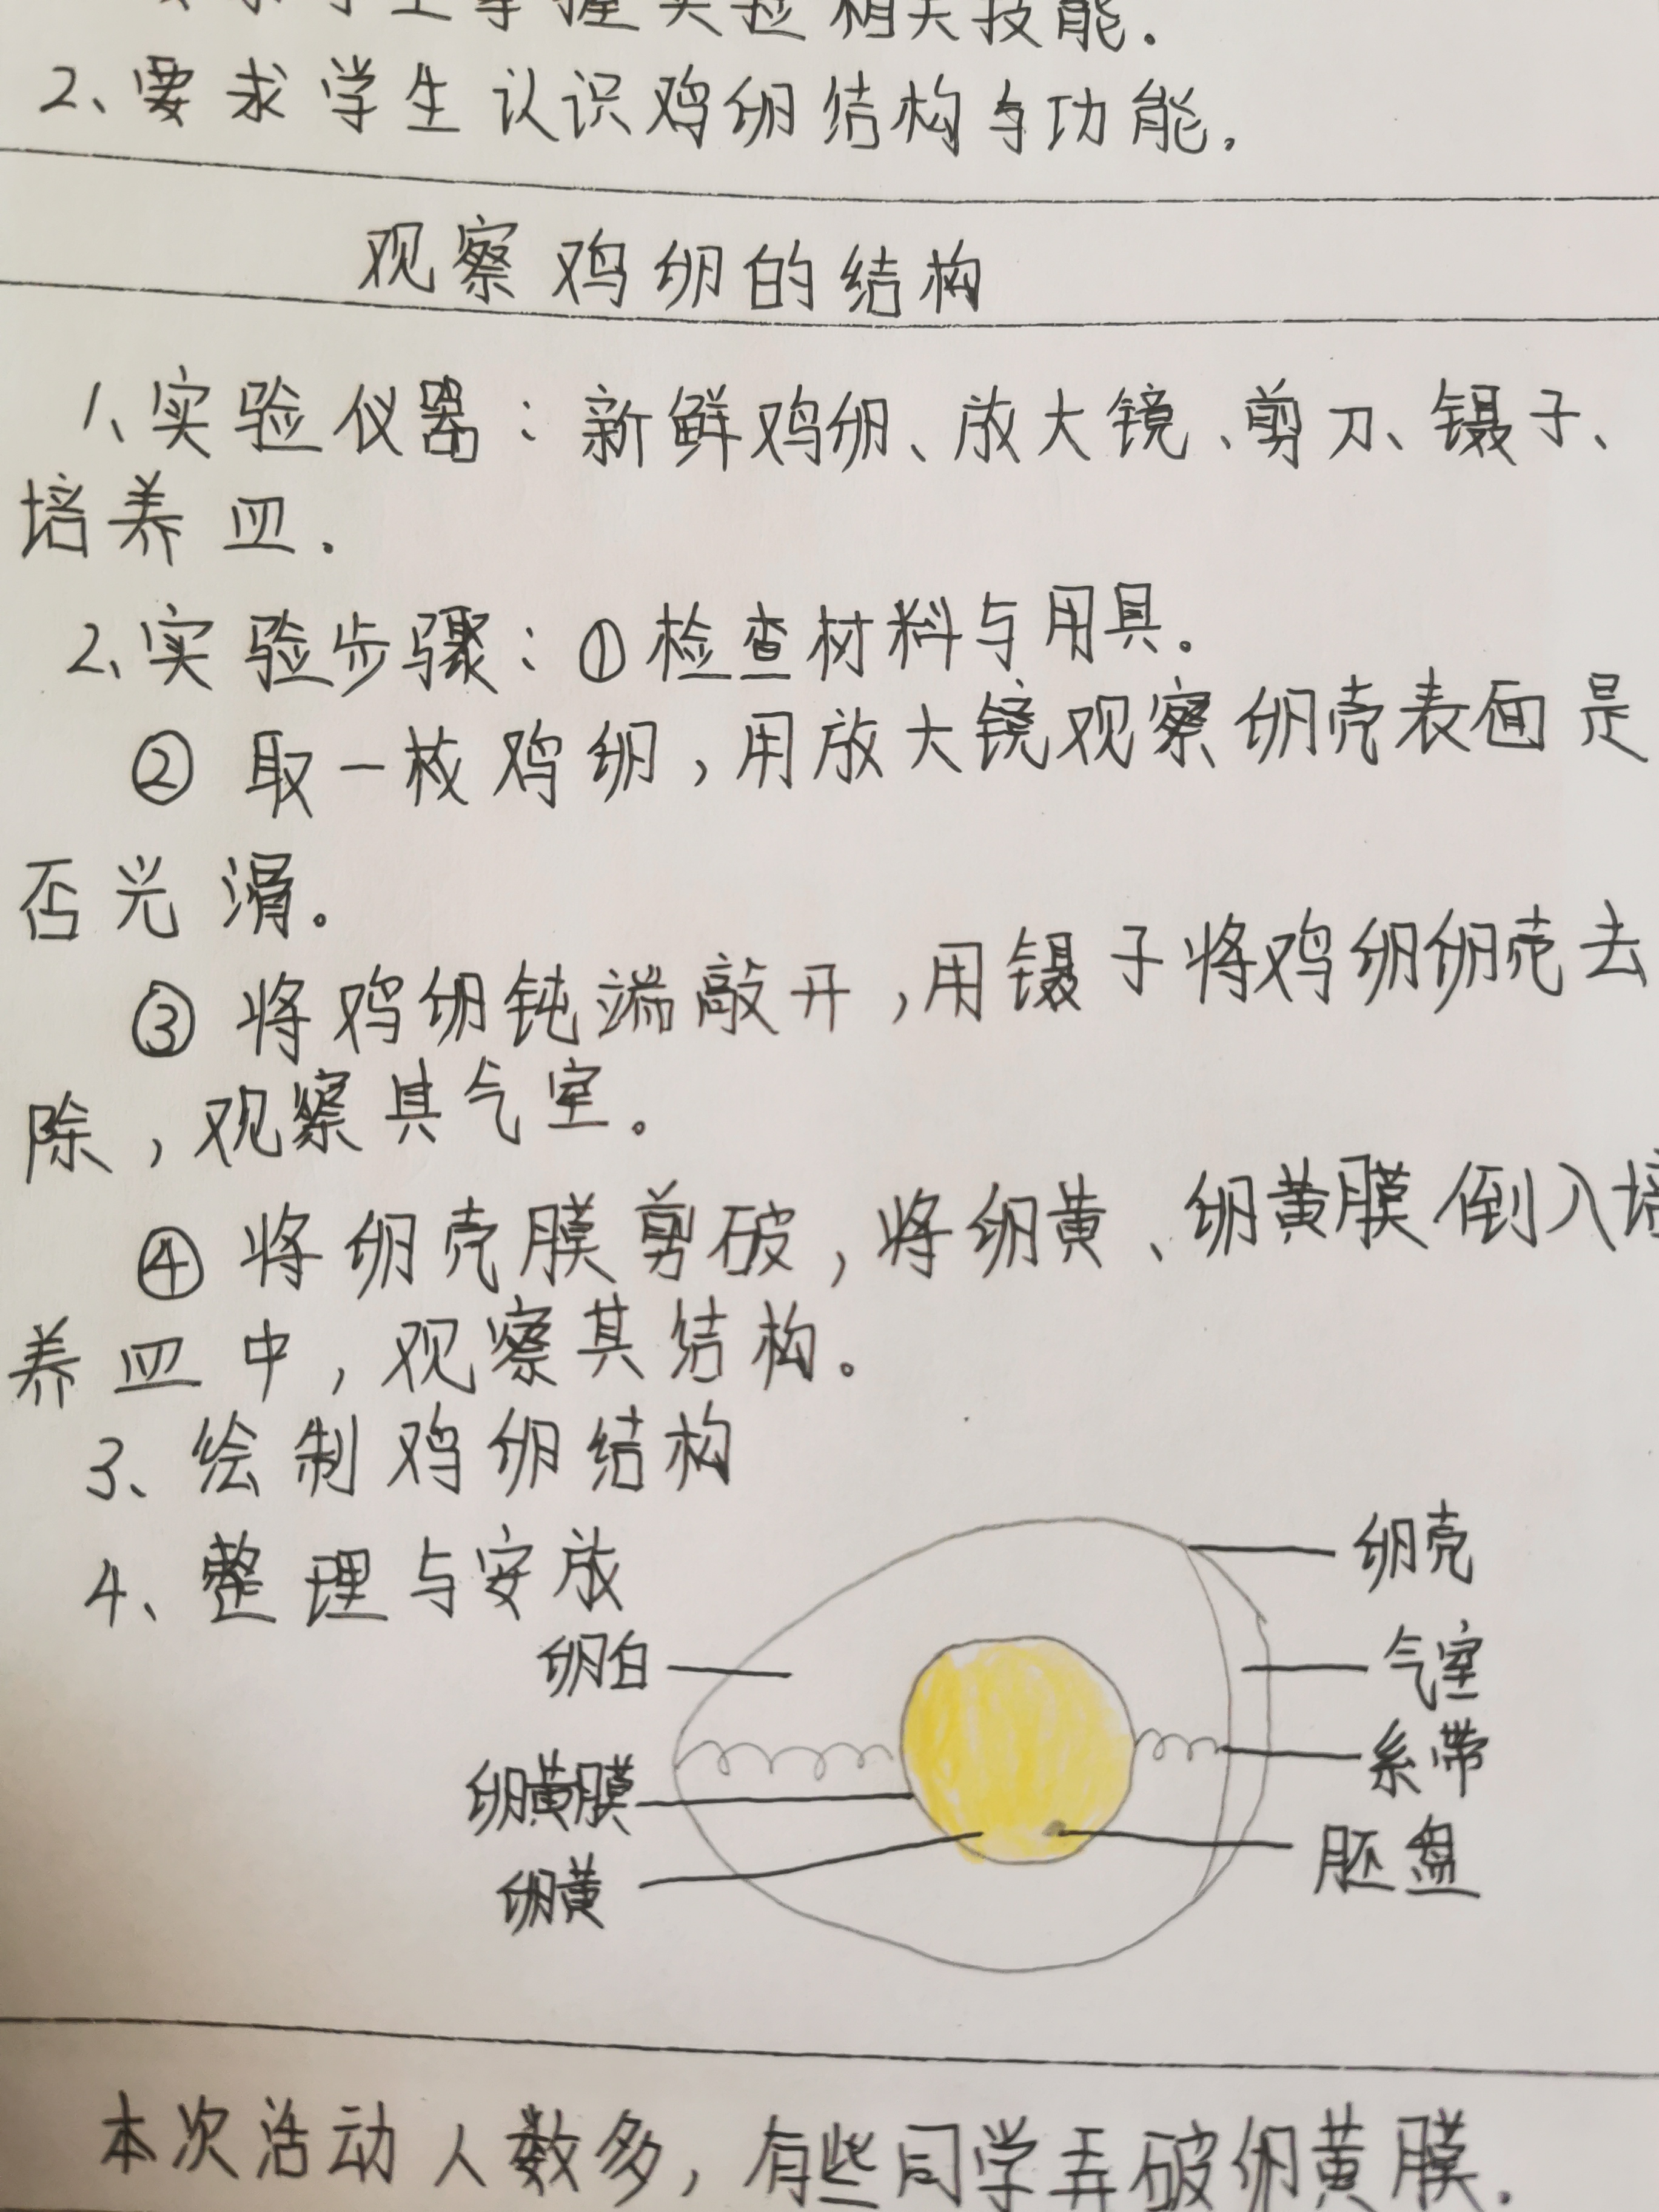 学生掌握实验相关技能.
2、要求学生认识鸡卵结构与功能.
观察鸡卵的结构
1、实验仪器：新鲜鸡卵、放大镜、剪刀、镊子、
培养皿.
2、实验步骤：①检查材料与用具。
②取一枚鸡卵，用放大镜观察卵壳表面是
否光滑。
③将鸡卵钝端敲开，用镊子将鸡卵卵壳去
除，观察其气室。
④将卵壳膜剪破，将卵黄、卵黄膜倒入培
养皿中，观察其结构。
3、绘制鸡卵结构
4、整理与安放
卵壳
卵白
气室
系带
卵黄膜
胚盘
卵黄
本次活动人数多，有些同学弄破卵黄膜.